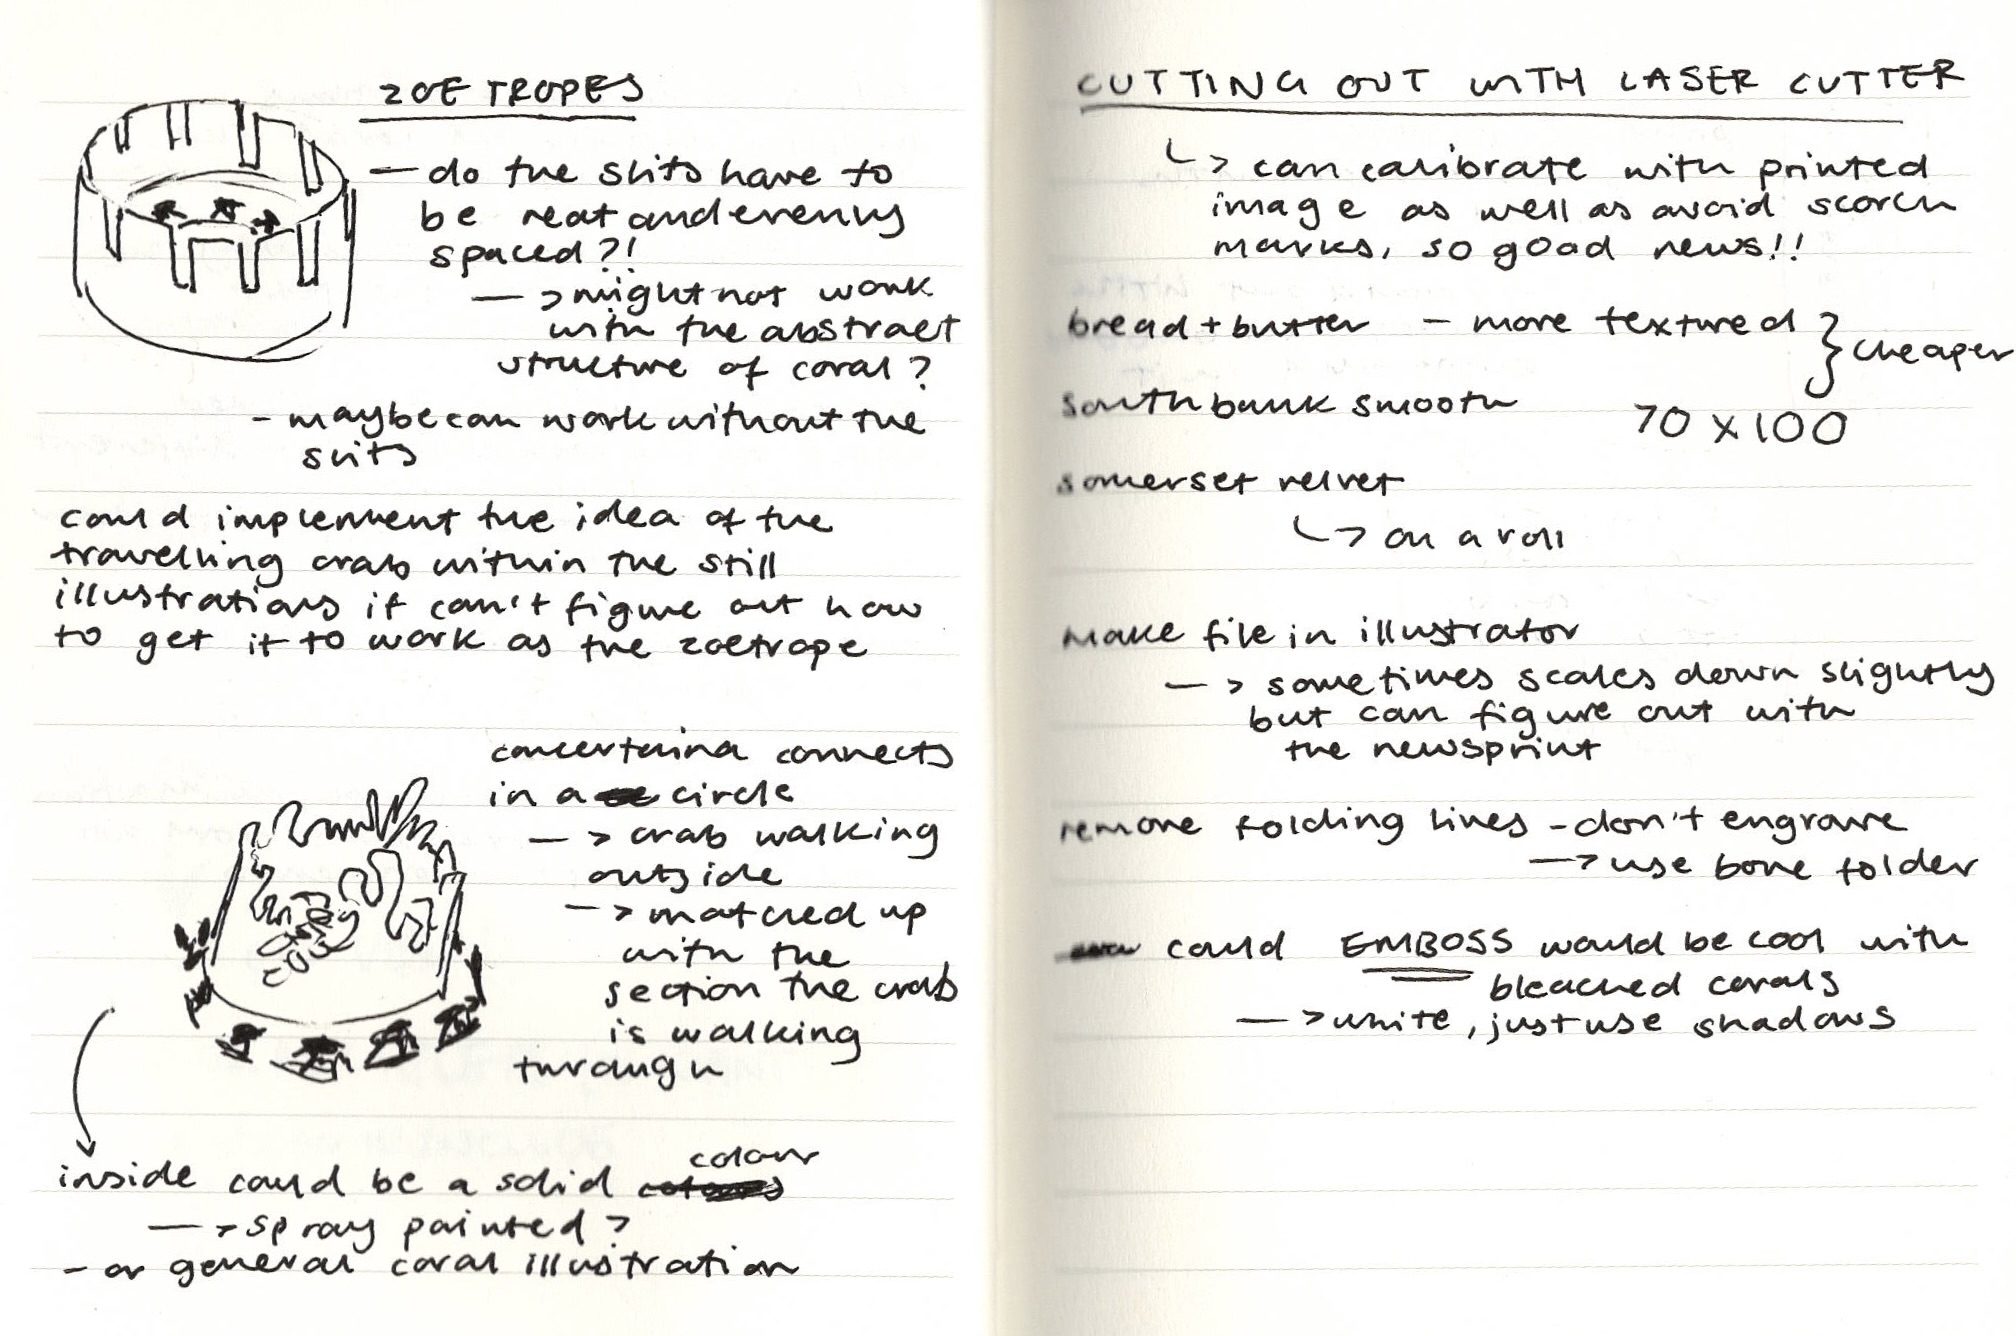 ZOETROPES
— do the slits have to
be neat and evenly
spaced?!
—> might not work
with the abstract
structure of coral?
- maybe can work without the
slits
could implement the idea of the
travelling crab within the still
illustrations if can't figure out how
to get it to work as the zoetrope
concertina connects
in a circle
—> crab walking
outside
—> matched up
with the
section the crab
is walking
through
colour
inside could be a solid
—> spray painted?
- or general coral illustration
CUTTING OUT WITH LASER CUTTER
↳ can calibrate with printed
image as well as avoid scorch
marks, so good news!!
bread + butter - more textured } cheaper
southbank smooth 70 x 100
somerset velvet
↳ on a roll
make file in illustrator
—> sometimes scales down slightly
but can figure out with
the newsprint
remove folding lines - don't engrave
—> use bone folder
could EMBOSS would be cool with
bleached corals
—> white, just use shadows